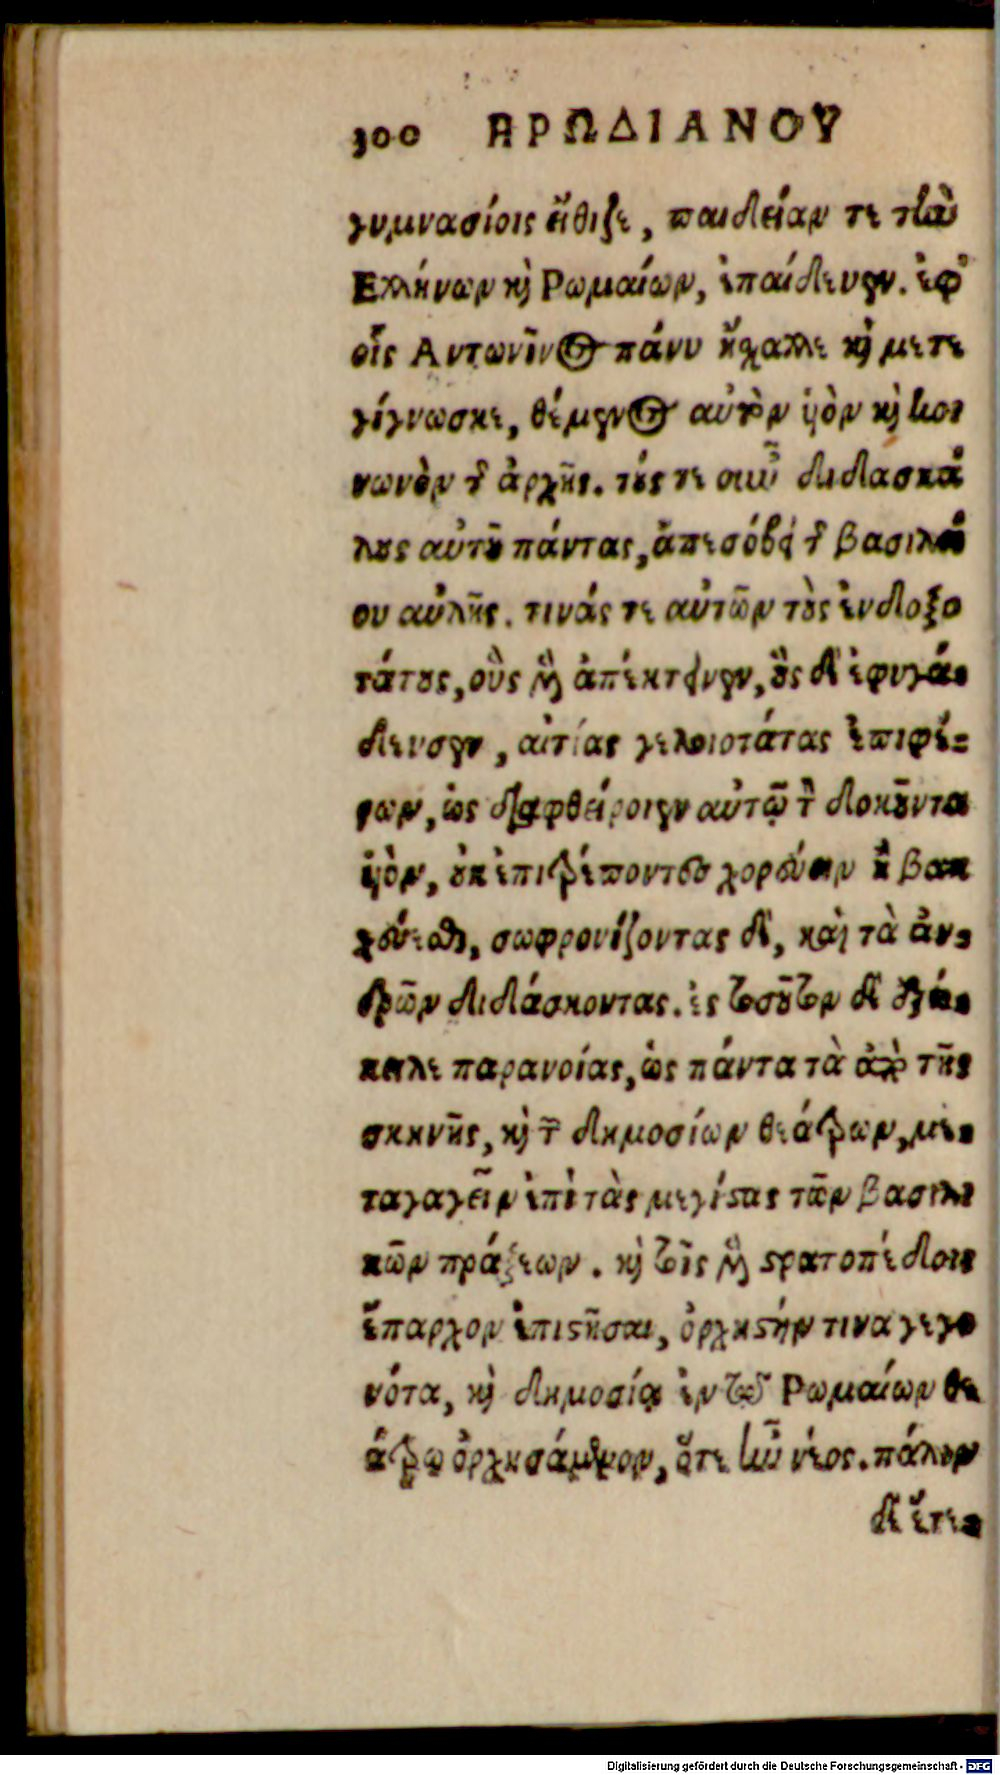 300 ΗΡΩΔΙΑΝΟΥ
γυμνασίοις εἴθιζε, παιδείαν τε τὴν
Ελλήνων κὶ Ρωμαίων, ἐπαίδευεν. ἐφ᾽
οἷς Αντωνῖνος πάνυ ἤχαλλε κὶ μετε
γίγνωσκε, θέμενος αὐτὸν ὑὸν κὶ κοι
νωνὸν τῆς ἀρχῆς. τούς τε οὖν διδασκά
λους αὐτοῦ πάντας, ἀπεσόβει τῆς βασιλεί
ου αὐλῆς. τινάς τε αὐτῶν τοὺς ἐνδοξο
τάτους, οὓς μὲν ἀπέκτεινεν, οὓς δὲ ἐφυγά-
δευσεν, αἰτίας γελοιοτάτας ἐπιφέ-
ρων, ὡς διαφθείροιεν αὐτῷ τὸν δοκοῦντα
ὑὸν, οὐκ ἐπιτρέποντες χορεύειν ἢ βακ
χεύεσθαι, σωφρονίζοντας δὲ, καὶ τὰ ἀν-
δρῶν διδάσκοντας. ἐς τοσοῦτον δὲ ἐξώ-
κειλε παρανοίας, ὡς πάντα τὰ ἀπὸ τῆς
σκηνῆς, κὶ τῶν δημοσίων θεάτρων, με-
ταγαγεῖν ἐπὶ τὰς μεγίστας τῶν βασιλι
κῶν πράξεων. κὶ τοῖς μὲν στρατοπέδοις
ἔπαρχον ἐπιστῆσαι, ὀρχηστήν τινα γεγο
νότα, κὶ δημοσίᾳ ἐν τῷ Ρωμαίων θε
άτρῳ ὀρχησάμενον, ὅτε ἦν νέος. πάλιν
δὲ ἕτε-
Digitalisierung gefördert durch die Deutsche Forschungsgemeinschaft - DFG